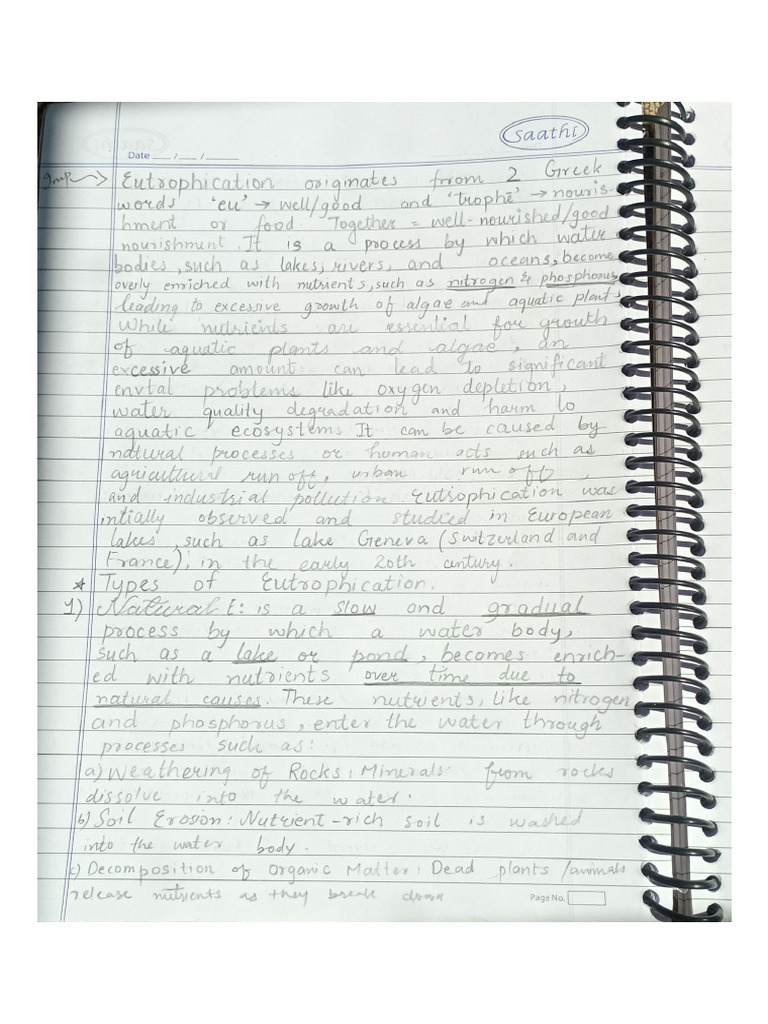 saathi
Date ___/___/___
Imp → Eutrophication originates from 2 Greek
words 'eu' → well/good and 'trophē' → nouris-
hment or food. Together = well-nourished/good
nourishment. It is a process by which water
bodies, such as lakes, rivers, and oceans, become
overly enriched with nutrients, such as nitrogen & phosphorus
leading to excessive growth of algae and aquatic plants
While nutrients are essential for growth
of aquatic plants and algae, an
excessive amount can lead to significant
envtal problems like oxygen depletion,
water quality degradation and harm to
aquatic ecosystems It can be caused by
natural processes or human acts such as
agricultural run off, urban run off,
and industrial pollution Eutrophication was
intially observed and studied in European
lakes, such as Lake Geneva (Switzerland and
France), in the early 20th century.
* Types of Eutrophication.
1) Natural E: is a slow and gradual
process by which a water body,
such as a lake or pond, becomes enrich-
ed with nutrients over time due to
natural causes. These nutrients, like nitrogen
and phosphorus, enter the water through
processes such as:
a) Weathering of Rocks: Minerals from rocks
dissolve into the water.
b) Soil Erosion: Nutrient-rich soil is washed
into the water body.
c) Decomposition of Organic Matter: Dead plants/animals
release nutrients as they break down
Page No.